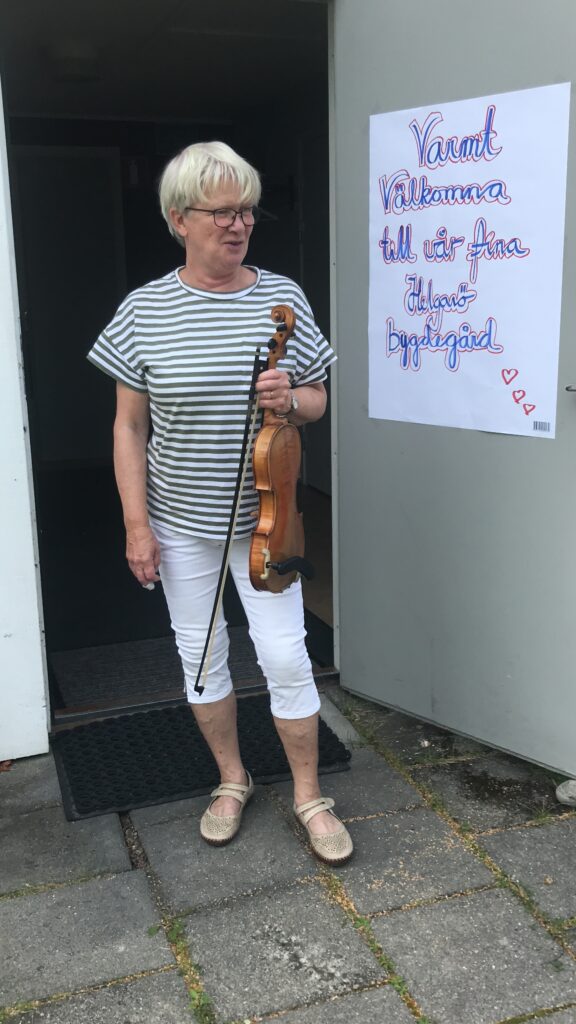 Varmt
Välkomna
till vår fina
Helgarö
bygdegård